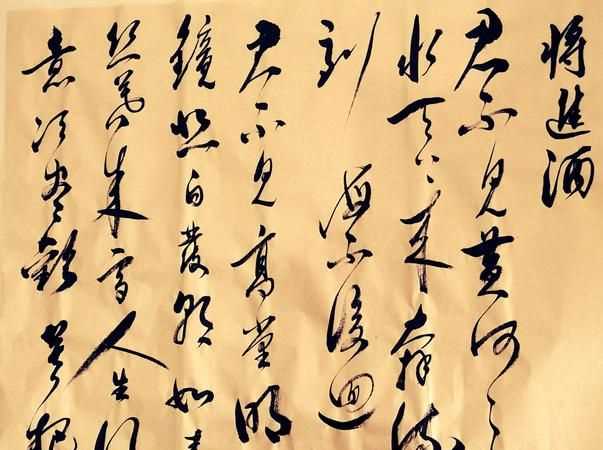 将進酒
君不見黄河之
水天上来奔流
到海不復迴
君不見高堂明
鏡悲白發朝如青
丝暮成雪人生得
意須尽歡莫把